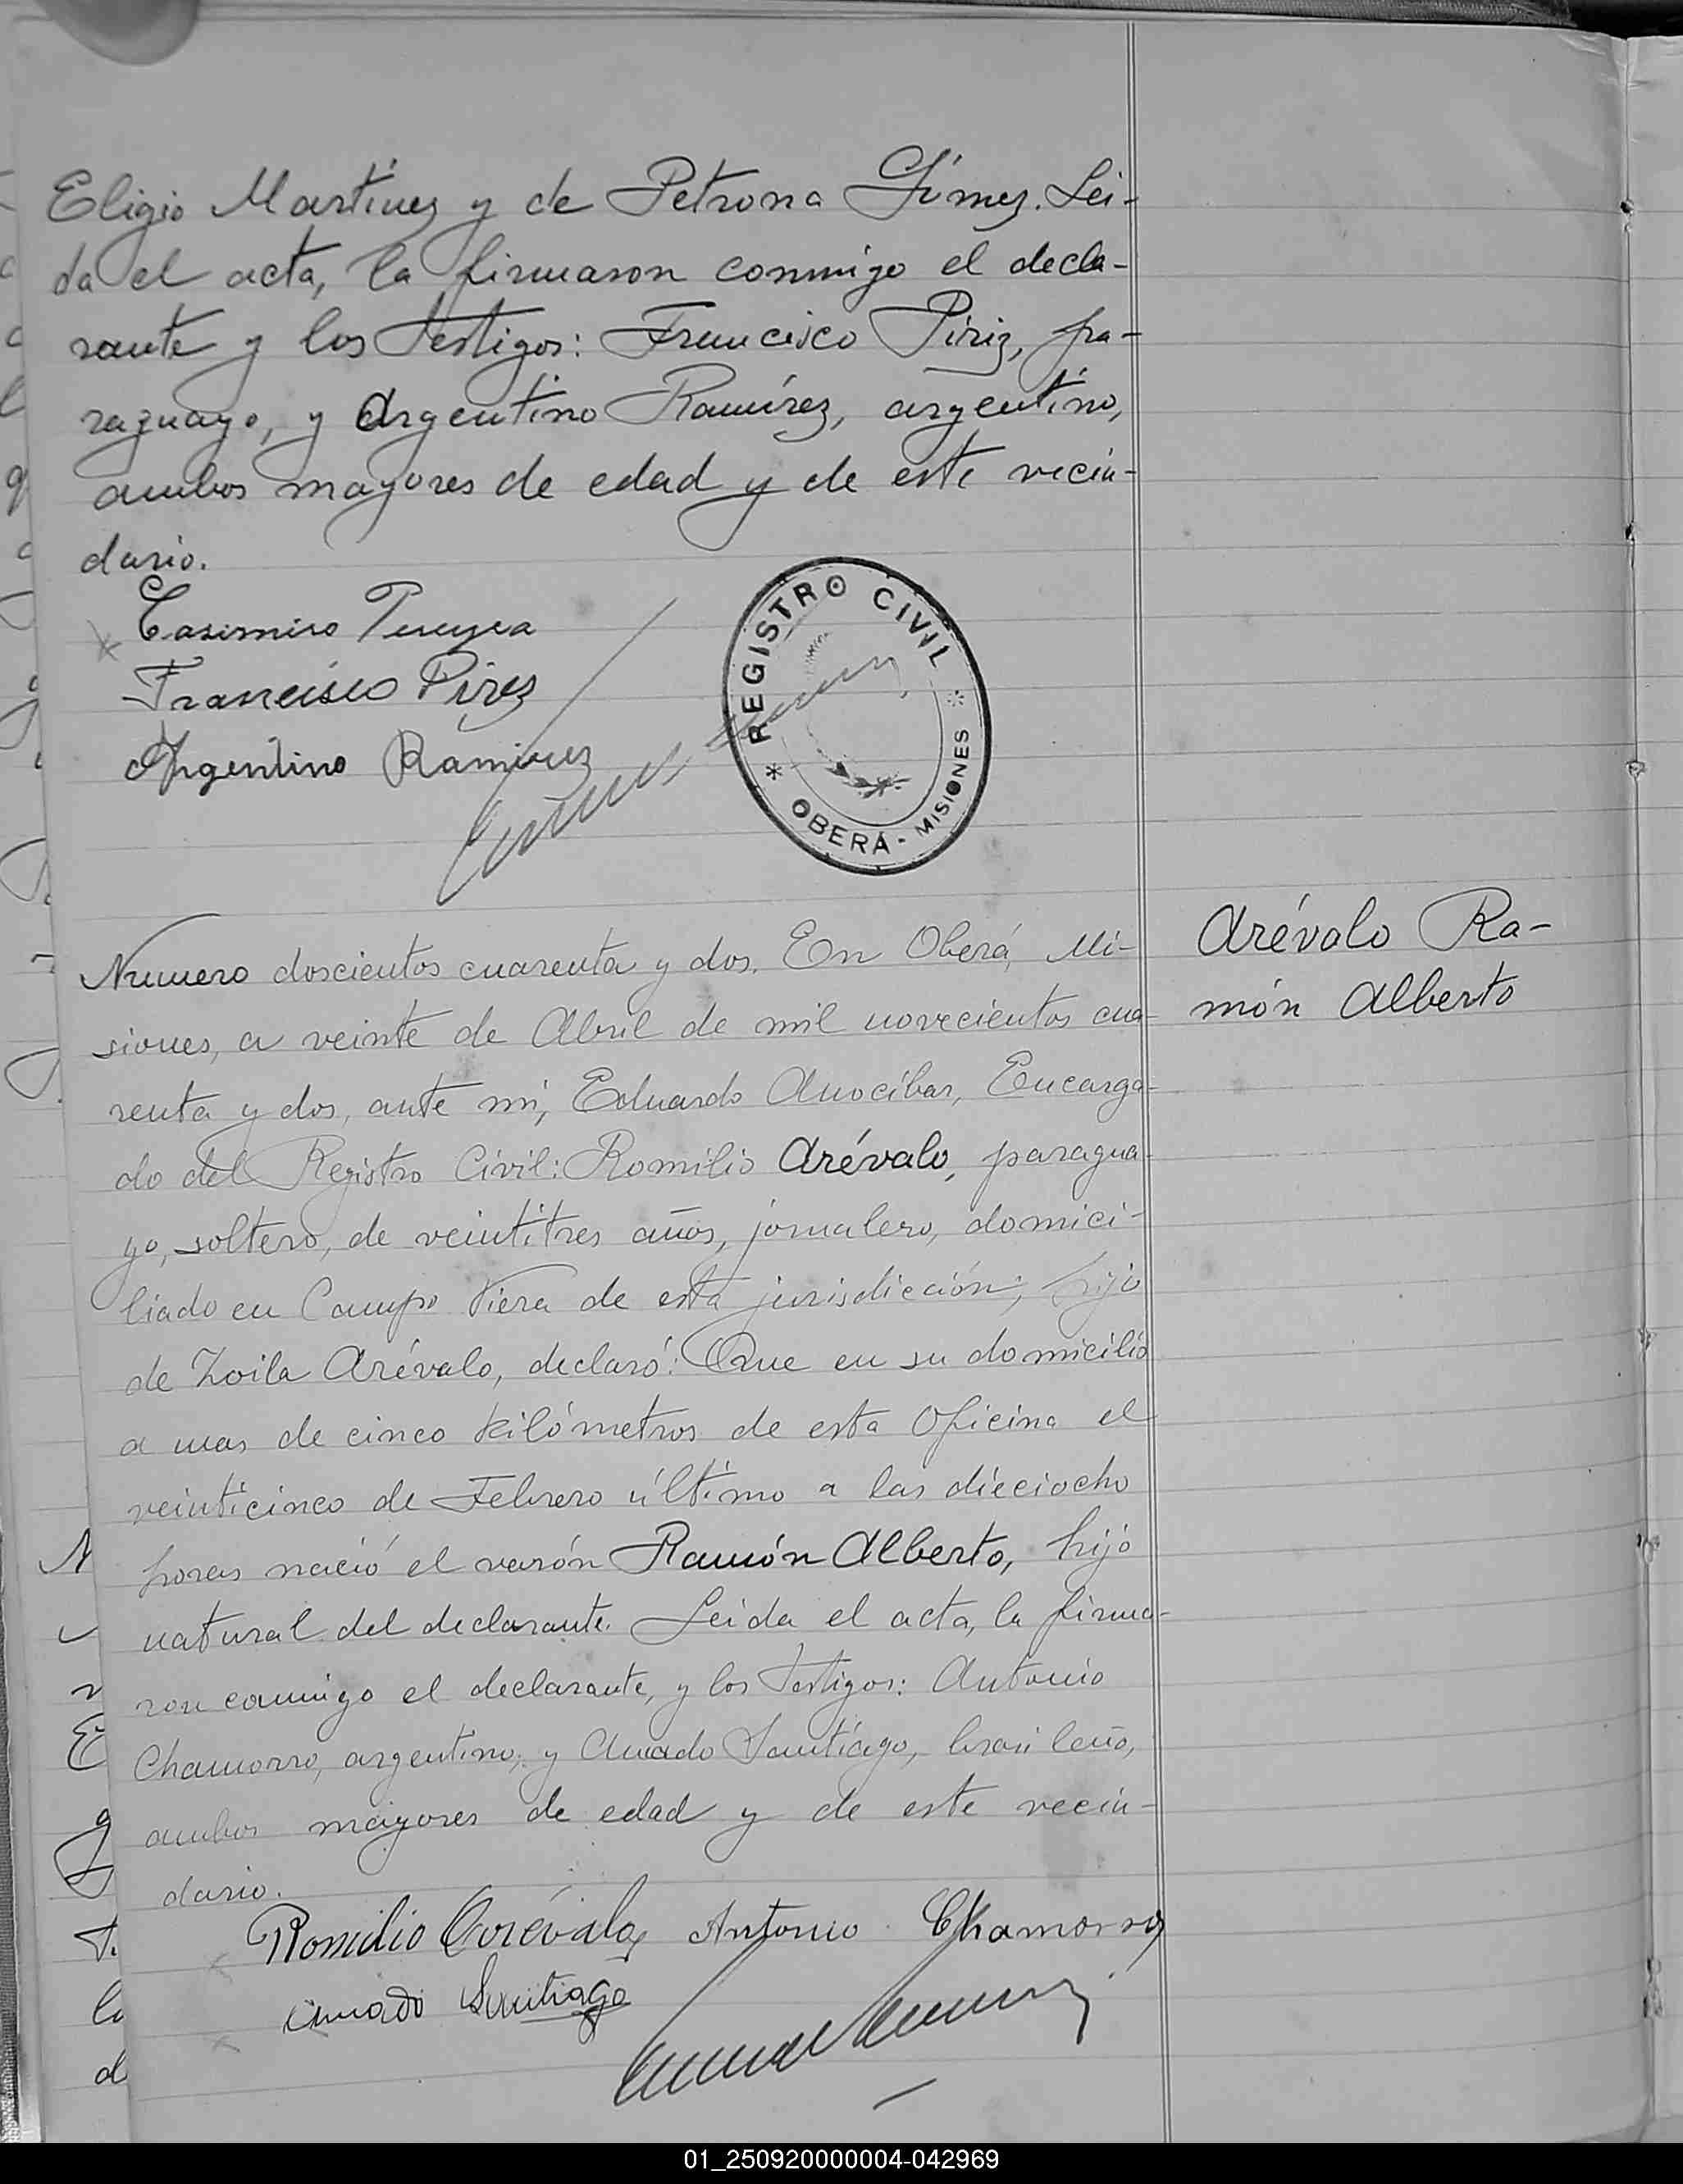 Eligio Martínez y de Petrona Gímez. Lei-
da el acta, la firmaron conmigo el decla-
rante y los testigos: Francisco Píriz, pa-
raguayo, y Argentino Ramírez, argentino,
ambos mayores de edad y de este vecin-
dario.
Casimiro Pereyra
Francisco Pires
Argentino Ramirez
REGISTRO CIVIL
OBERÁ - MISIONES
Numero doscientos cuarenta y dos. En Oberá, Mi-
siones, a veinte de Abril de mil novecientos cua-
renta y dos, ante mi, Eduardo Anocíbar, Encarga-
do del Registro Civil: Romilio Arévalo, paragua-
yo, soltero, de veintitres años, jornalero, domici-
liado en Campo Viera de esta jurisdicción, hijo
de Zoila Arévalo, declaró: Que en su domicilio
a mas de cinco kilómetros de esta Oficina el
veinticinco de Febrero último a las dieciocho
horas nació el varón Ramón Alberto, hijo
natural del declarante. Leida el acta, la firma-
ron conmigo el declarante, y los testigos: Antonio
Chamorro, argentino, y Amado Santiago, brasileño,
ambos mayores de edad y de este vecin-
dario.
Romilio Arévalo Antonio Chamorro
Amado Santiago
Arévalo Ra-
món Alberto
01_250920000004-042969